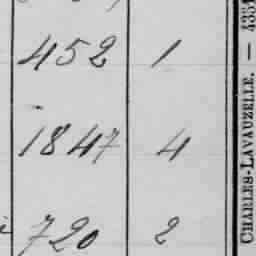 452 1
1847 4
720 2
CHARLES-LAVAUZELLE. — 4354